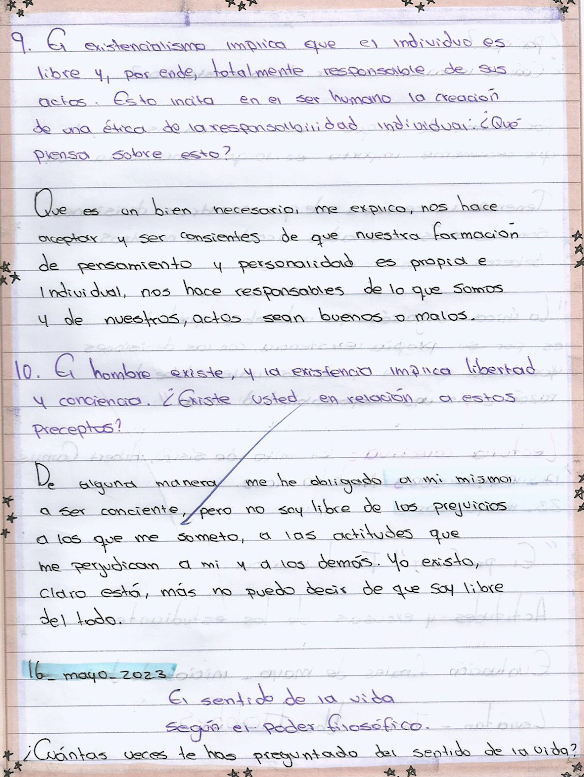 9. El existencialismo implica que el individuo es
libre y, por ende, totalmente responsable de sus
actos. Esto incita en el ser humano la creación
de una ética de la responsalbilidad individual: ¿Qué
piensa sobre esto?
Que es un bien necesario, me explico, nos hace
aceptar y ser consientes de que nuestra formación
de pensamiento y personalidad es propia e
Individual, nos hace responsables de lo que somos
y de nuestros, actos sean buenos o malos.
10. El hombre existe, y la existencia implica libertad
y conciencia. ¿Existe usted en relación a estos
preceptos?
De alguna manera me he obligado a mi mismo
a ser conciente, pero no soy libre de los prejuicios
a los que me someto, a las actitudes que
me perjudican a mi y a los demás. Yo existo,
claro está, más no puedo decir de que soy libre
del todo.
16_ mayo_2023
El sentido de la vida
según el poder filosófico.
¿Cuántas veces te has preguntado del sentido de la vida?